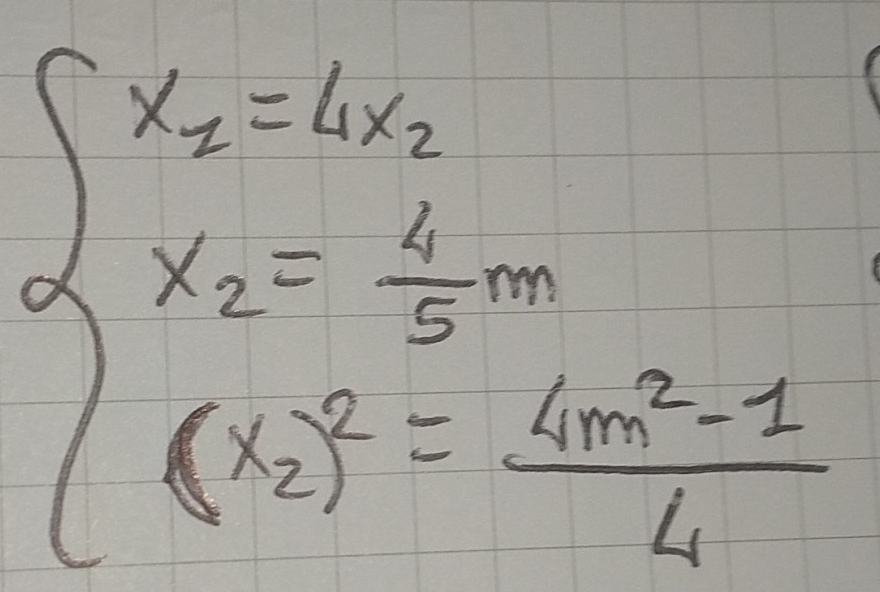 x₁ = 4x₂
x₂ = 4/5 m
(x₂)² = (4m² - 1)/4